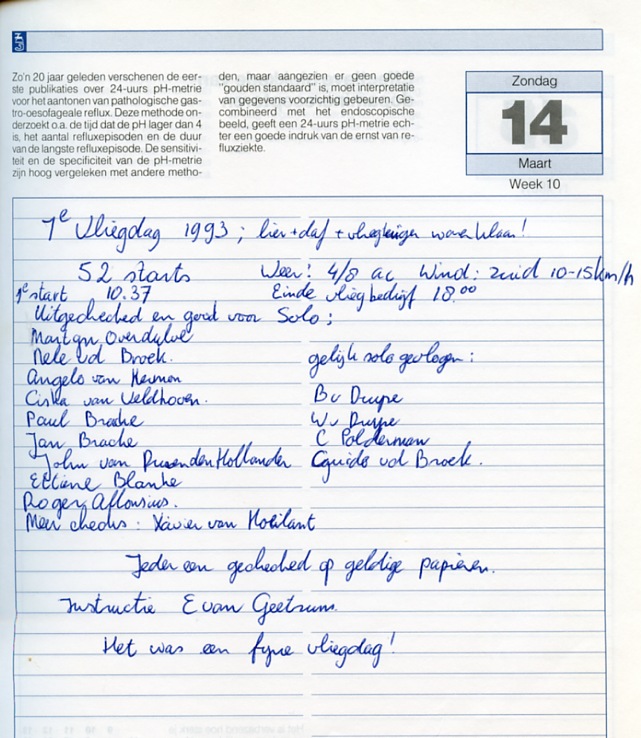 Zo'n 20 jaar geleden verschenen de eer-
ste publikaties over 24-uurs pH-metrie
voor het aantonen van pathologische gas-
tro-oesofageale reflux. Deze methode on-
derzoekt o.a. de tijd dat de pH lager dan 4
is, het aantal refluxepisoden en de duur
van de langste refluxepisode. De sensitivi-
teit en de specificiteit van de pH-metrie
zijn hoog vergeleken met andere metho-
den, maar aangezien er geen goede
"gouden standaard" is, moet interpretatie
van gegevens voorzichtig gebeuren. Ge-
combineerd met het endoscopische
beeld, geeft een 24-uurs pH-metrie ech-
ter een goede indruk van de ernst van re-
fluxziekte.
Zondag
14
Maart
Week 10
1e Vliegdag 1993 ; lier + daf + vliegtuigen waren klaar!
52 starts Weer: 4/8 ac Wind: zuid 10-15km/h
1e start 10.37 Einde vliegbedrijf 18.00
Uitgechecked en goed voor Solo:
Martyn Overdulve
Nele vd Broek.
Angelo van
Ciska van Veldhoven.
Paul Brache
Jan Brache
John van
Etiene Blanke
Roger Aflonsius.
Meer checks : Xavier van
gelijk solo gevlogen :
Bv Duype
Wv Duype
C Polderman
Guido vd Broek.
Ieder een gechecked op geldige papieren.
Instructie E van
Het was een fyne vliegdag!